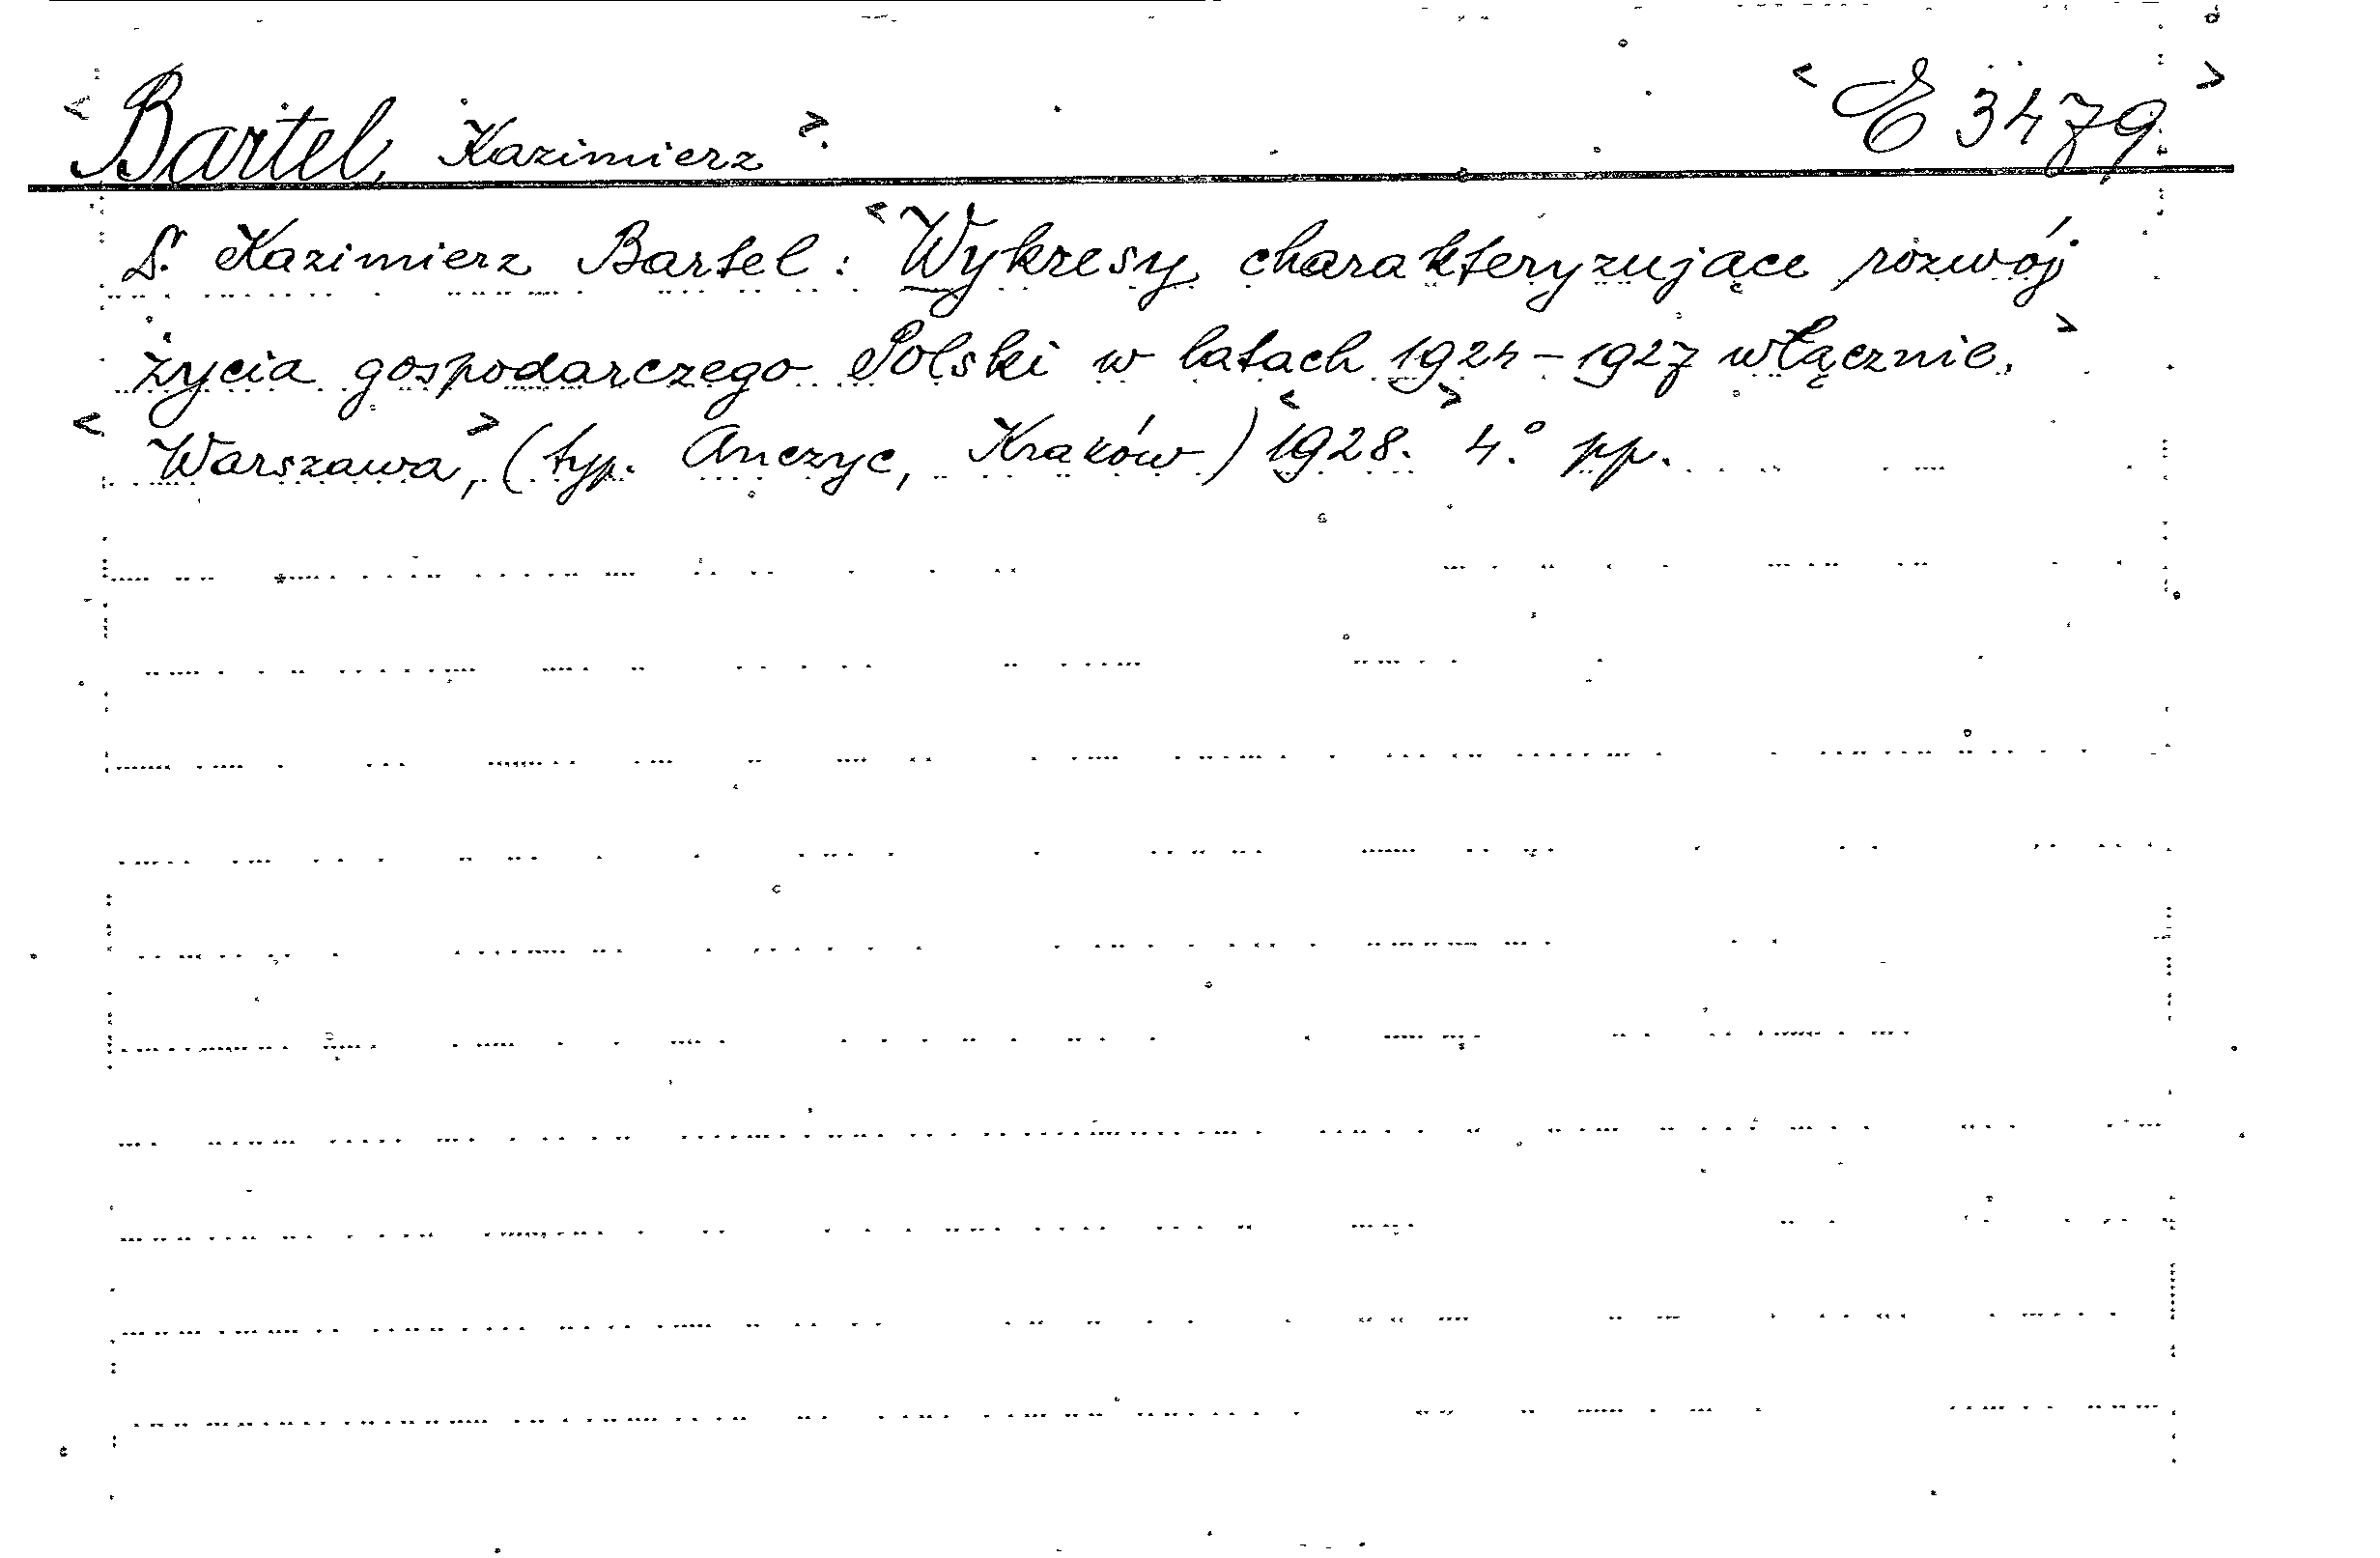 <Bartel, Kazimierz>. <E 3479.>
Dr. Kazimierz Bartel: <Wykresy charakteryzujące rozwój
życia gospodarczego Polski w latach 1924-1927 włącznie.>
<Warszawa>, (typ. Anczyc, Kraków) <1928.> 4.° pp.